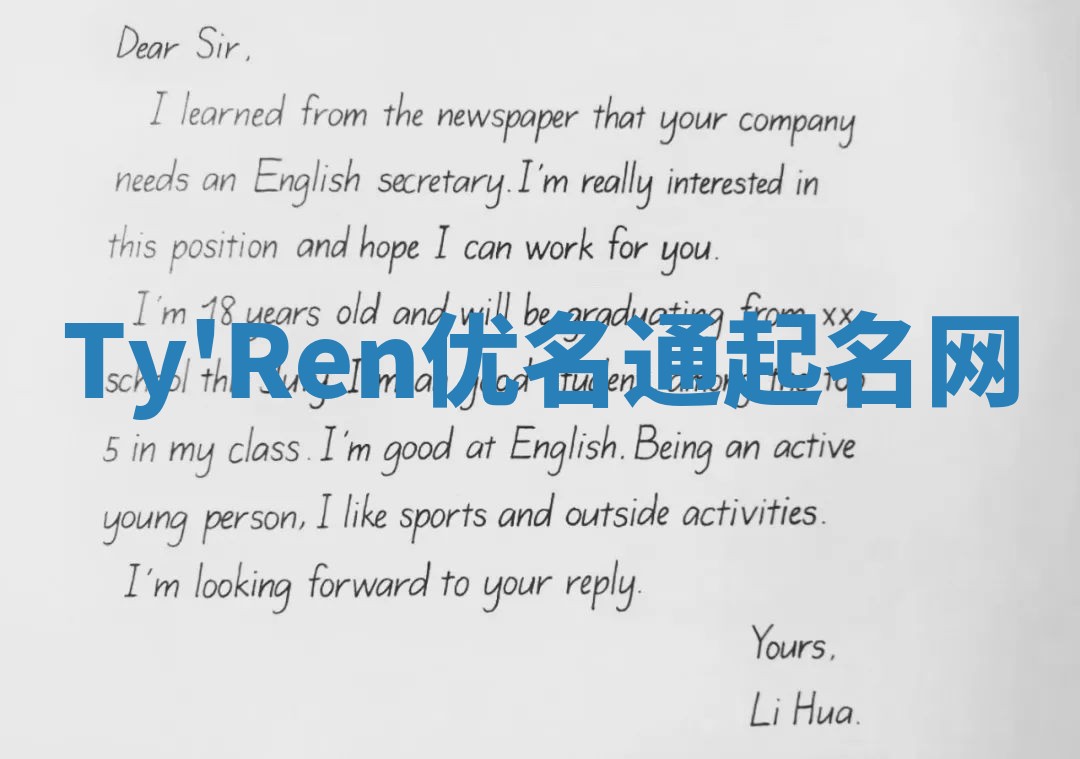 Dear Sir,
I learned from the newspaper that your company
needs an English secretary. I'm really interested in
this position and hope I can work for you.
I'm 18 years old and will be graduating from xx
Ty'Ren优名通起名网
school this July. I'm a good student among the top
5 in my class. I'm good at English. Being an active
young person, I like sports and outside activities.
I'm looking forward to your reply.
Yours,
Li Hua.